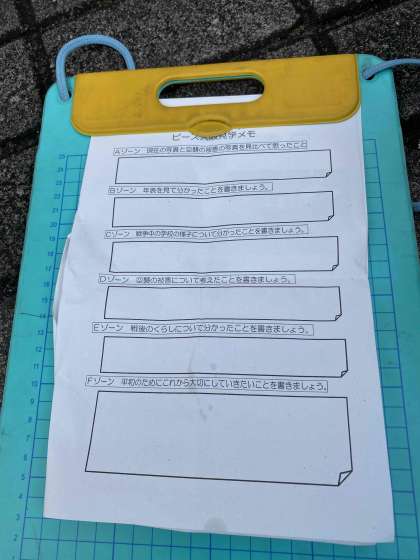 ピース大阪見学メモ
Aゾーン 現在の写真と空襲の被害の写真を見比べて思ったこと
Bゾーン 年表を見て分かったことを書きましょう。
Cゾーン 戦争中の学校の様子について分かったことを書きましょう。
Dゾーン 空襲の被害について考えたことを書きましょう。
Eゾーン 戦後のくらしについて分かったことを書きましょう。
Fゾーン 平和のためにこれから大切にしていきたいことを書きましょう。